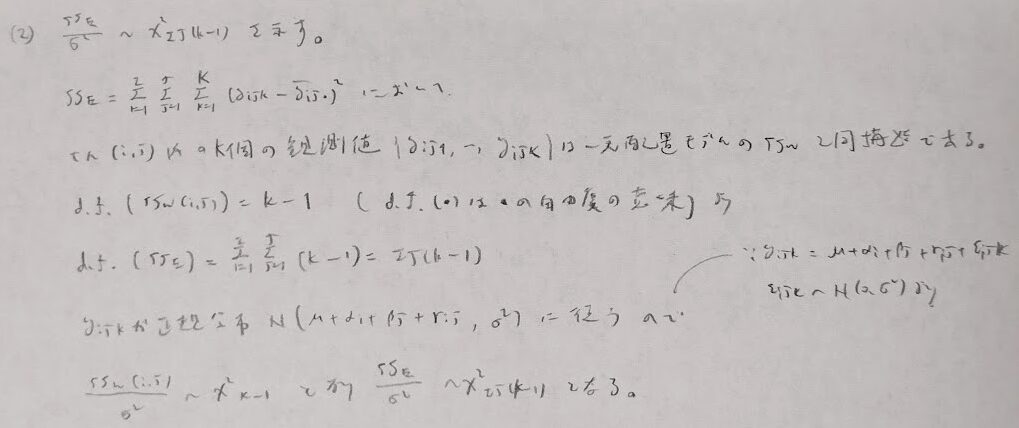 (2) SS_E/σ² ~ χ²_{IJ(k-1)} を示す。
SS_E = Σ_{k=1}^{I} Σ_{j=1}^{J} Σ_{k=1}^{K} (y_{ijk} - ȳ_{ij・})² において、
セル (i,j) 内のK個の観測値 {y_{ij1}, …, y_{ijK}} は一元配置モデルの SS_W と同構造である。
d.f. (SS_W(i,j)) = k-1 ( d.f. (•) は • の自由度の意味) より
d.f. (SS_E) = Σ_{i=1}^{I} Σ_{j=1}^{J} (k-1) = IJ(k-1)
∵ y_{ijk} = μ+α_i+β_j+γ_{ij}+ε_{ijk}
ε_{ijk} ~ N(0,σ²) より
y_{ijk} が正規分布 N(μ+α_i+β_j+γ_{ij}, σ²) に従うので
SS_W(i,j)/σ² ~ χ²_{k-1} となり SS_E/σ² ~ χ²_{IJ(k-1)} となる。